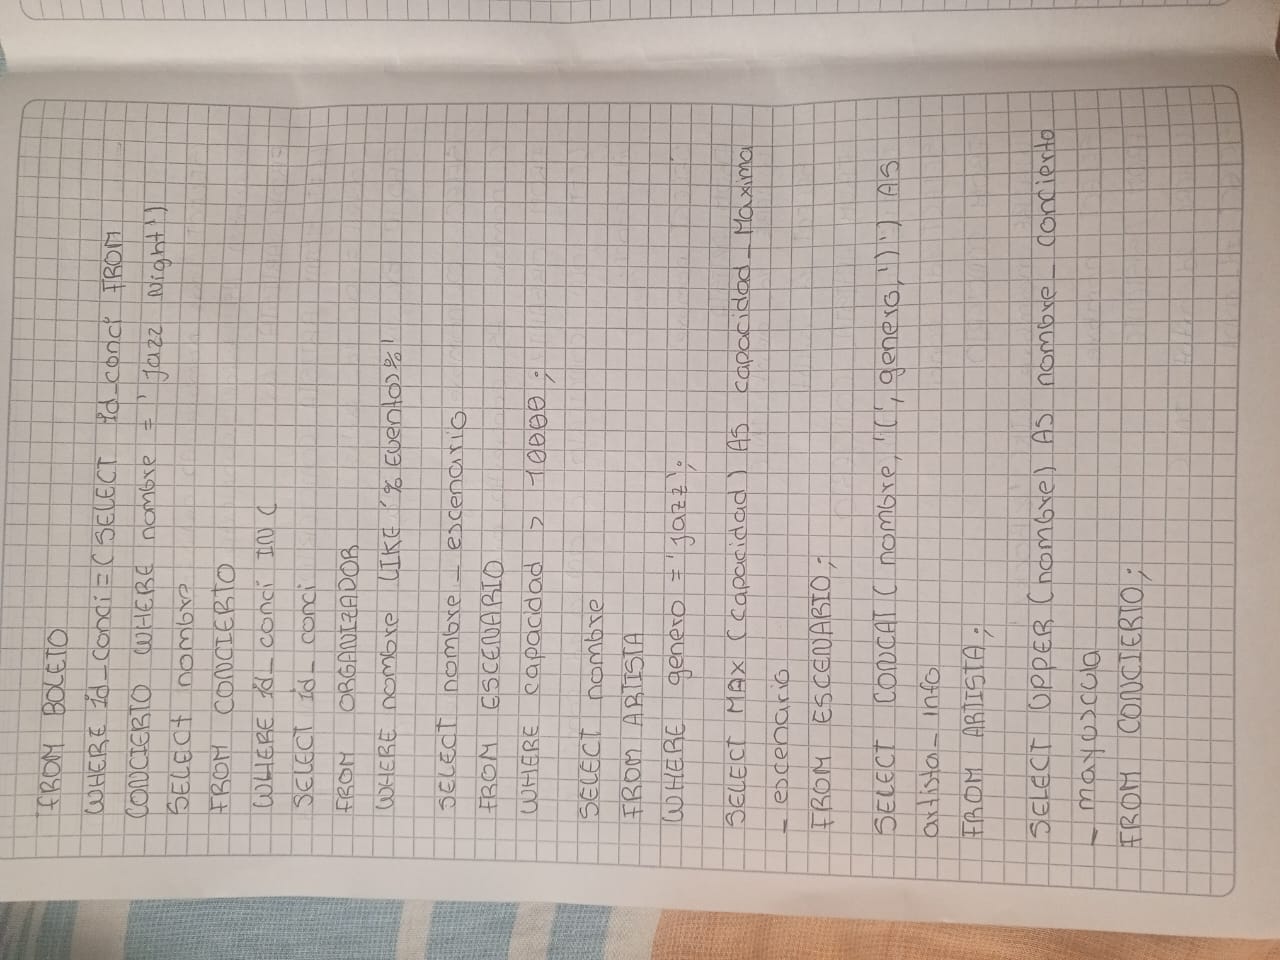 FROM BOLETO
WHERE id_conci=(SELECT id_conci FROM
CONCIERTO WHERE nombre = 'Jazz Night')
SELECT nombre
FROM CONCIERTO
WHERE id_conci IN (
SELECT id_conci
FROM ORGANIZADOR
WHERE nombre LIKE '% Eventos%'
SELECT nombre_escenario
FROM ESCENARIO
WHERE capacidad > 10000;
SELECT nombre
FROM ARTISTA
WHERE genero = 'Jazz';
SELECT MAX (capacidad) AS capacidad_Maxima
_ escenario
FROM ESCENARIO;
SELECT CONCAT ( nombre,'(', genero,')') AS
artista_info
FROM ARTISTA;
SELECT UPPER (nombre) AS nombre_concierto
_ mayuscula
FROM CONCIERTO;